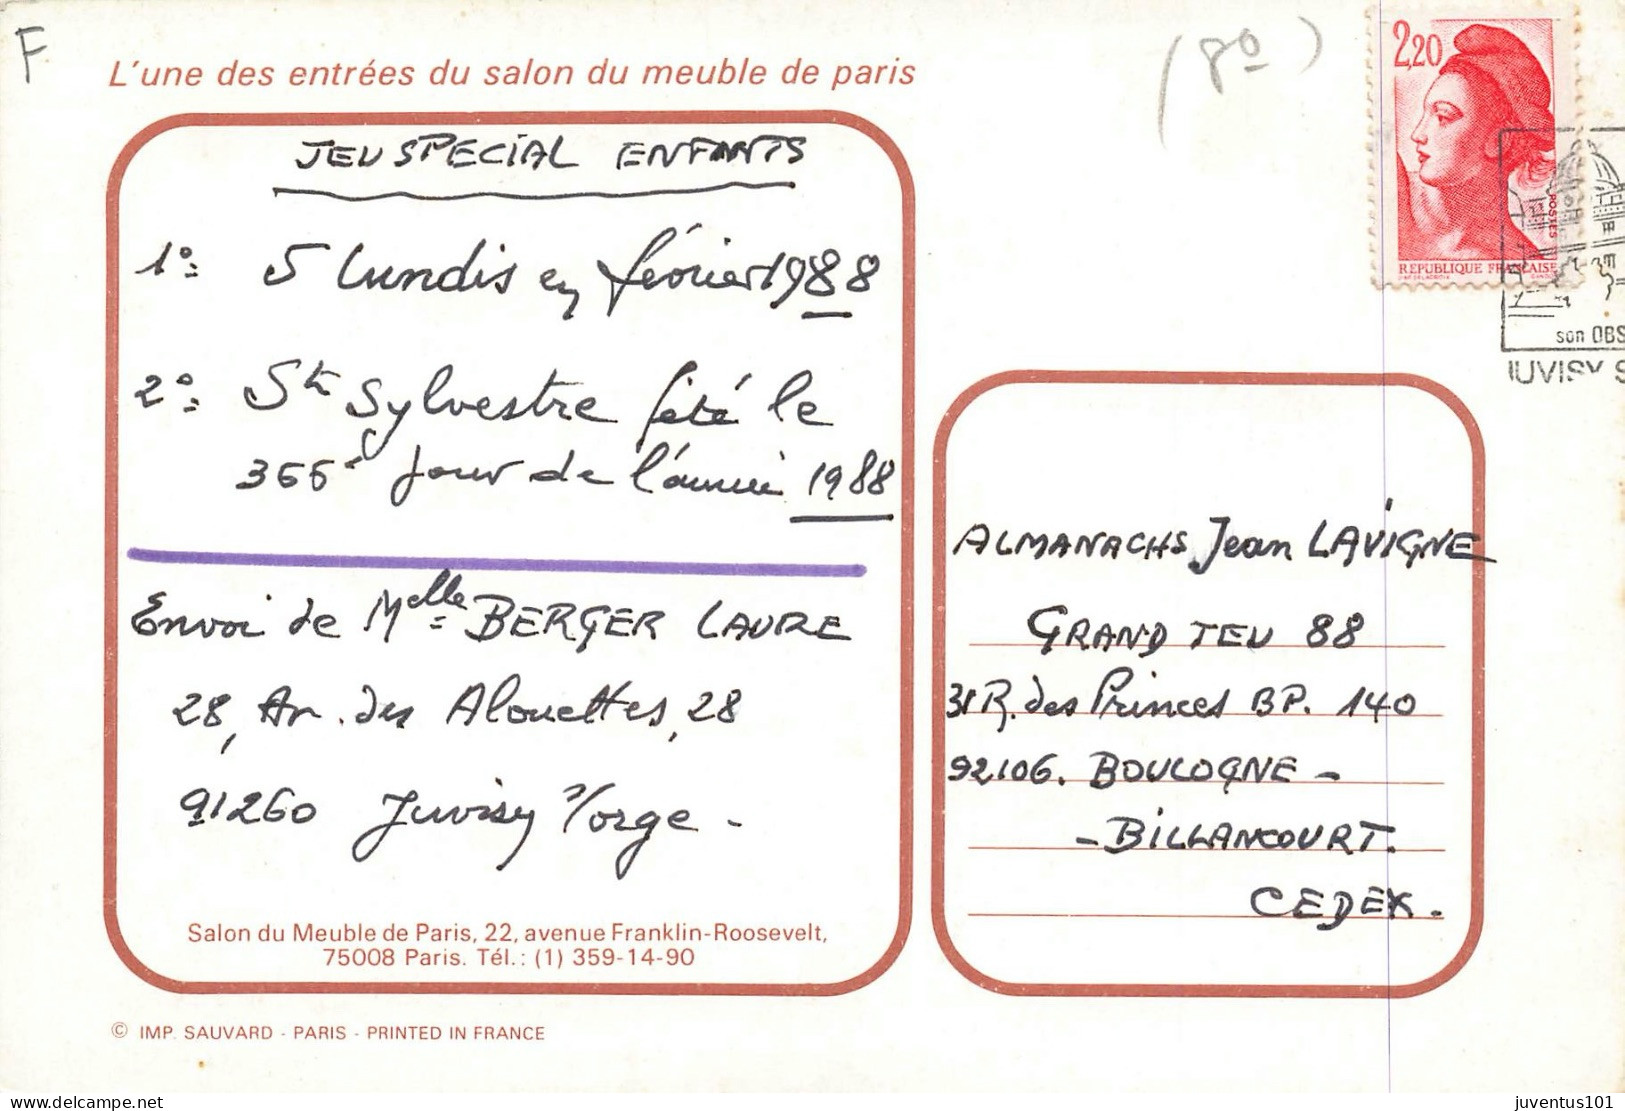 F
(80)
L'une des entrées du salon du meuble de paris
2,20
POSTES
REPUBLIQUE FRANÇAISE
son OBS
JUVISY S
JEU SPECIAL ENFANTS
1°= 5 lundis en février 1988
2°= St Sylvestre fêté le
366è jour de l'année 1988
Envoi de Melle BERGER LAURE
28, Av. des Alouettes, 28
91260 Juvisy s/orge -
Salon du Meuble de Paris, 22, avenue Franklin-Roosevelt,
75008 Paris. Tél.: (1) 359-14-90
ALMANACHS Jean LAVIGNE
GRAND JEU 88
31 R. des Princes BP. 140
92106. BOULOGNE -
- BILLANCOURT.
CEDEX.
© IMP. SAUVARD - PARIS - PRINTED IN FRANCE
delcampe.net
juventus101